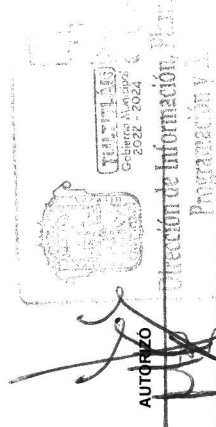 TULTITLÁN
Gobierno Municipal
2022 - 2024
Dirección de Información,
Programación y
AUTORIZÓ